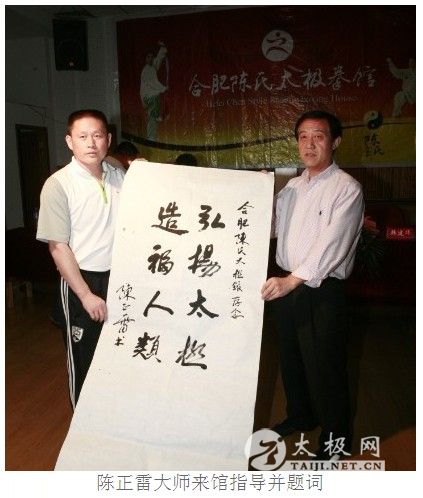 合肥陈氏太极拳馆
Hefei Chen Style
陈氏
合肥陈氏太极拳馆存念
弘揚太極
造福人類
陳正雷书
太极网
TAIJI.NET.CN
陈正雷大师来馆指导并题词